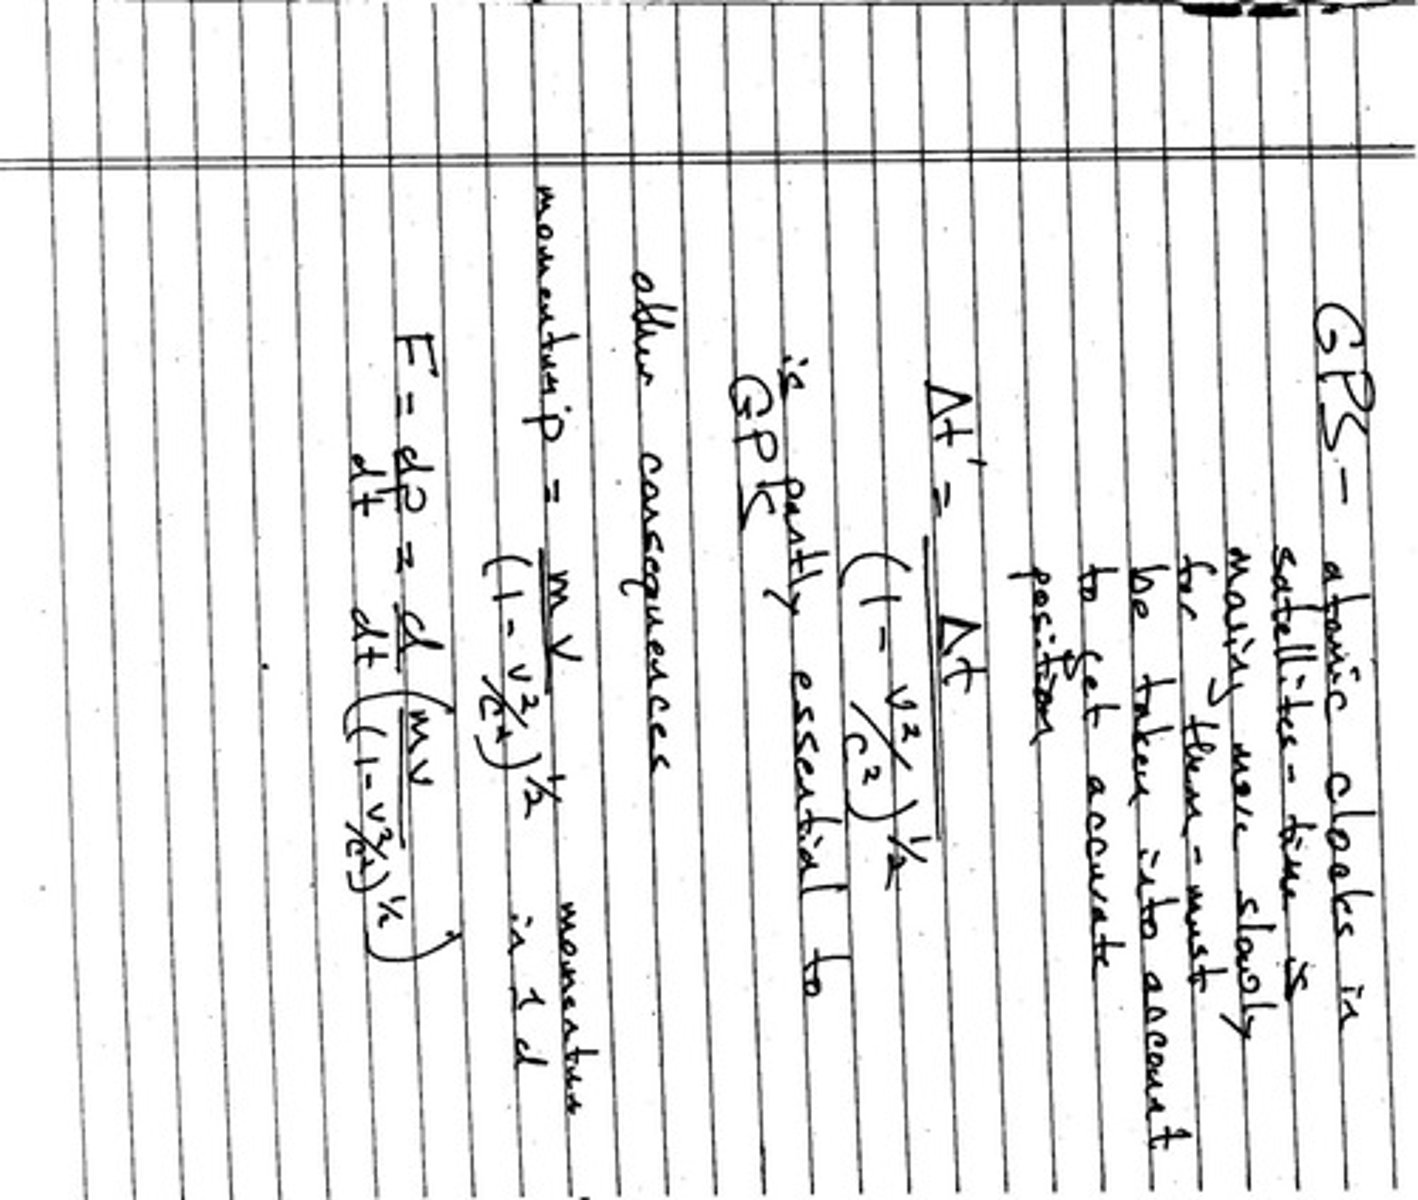 GPS - atomic clocks in
satellites - time is
moving more slowly
for them - must
be taken into account
to get accurate
position
Δt' = Δt / (1 - v²/c²)^½
is partly essential to
GPS
other consequences
momentum p = mv / (1 - v²/c²)^½ momentum
in 1 d
F = dp/dt = d/dt (mv / (1 - v²/c²)^½)